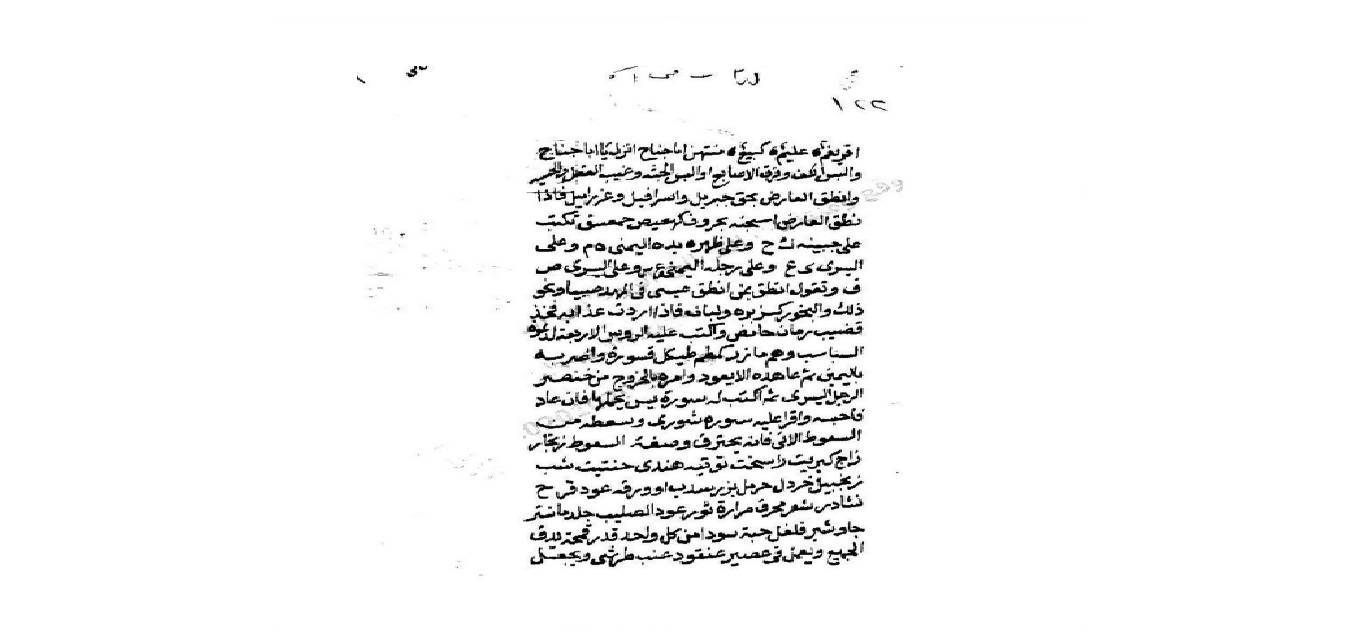 ١٢٢
عليم كبيج منتهن اباجناح انزل يا اباجناح
والبس الكف وفرق الاصابع والبس الجثه وغيب العقل
وانطق العارض بحق جبريل واسرافيل وعزرايل فاذا
نطق العارض اسجنه بحروف كهيعص حمعسق تكتب
على جبينه ك ح وعلى ظهر يده اليمنى ه م وعلى
اليسرى ى ع وعلى رجله اليمنى ع س وعلى اليسرى ص
ق وتقول انطق بمن انطق عيسى فى المهد صبيا ونحو
ذلك والبخور كزبره ولبانه فاذا اردت عذابه فخذ
قضيب رمان حامض واكتب عليه الروس الاربعه
وهم مازر كمطم طيكل قسورة واضربه
باليمنى ثم عاهده الا يعود وامره بالخروج من خنصر
الرجل اليسرى ثم اكتب له سورة يس يحملها فان عاد
فاحبسه واقرا عليه سوره شورى وسعطه من
السعوط الاتى فانه يحترق وصفة السعوط زنجار
زاج كبريت هندى حنتيت شب
زنجبيل خردل حرمل بزر سداب او ورقه عود قرح
نشادر شعر محرق مرارة ثور عود الصليب جلد
جاوشير فلفل حبة سودا من كل واحد قدر قمحة يدق
الجميع ويعمل فى عصير عنقود عنب طرشى ويجعل